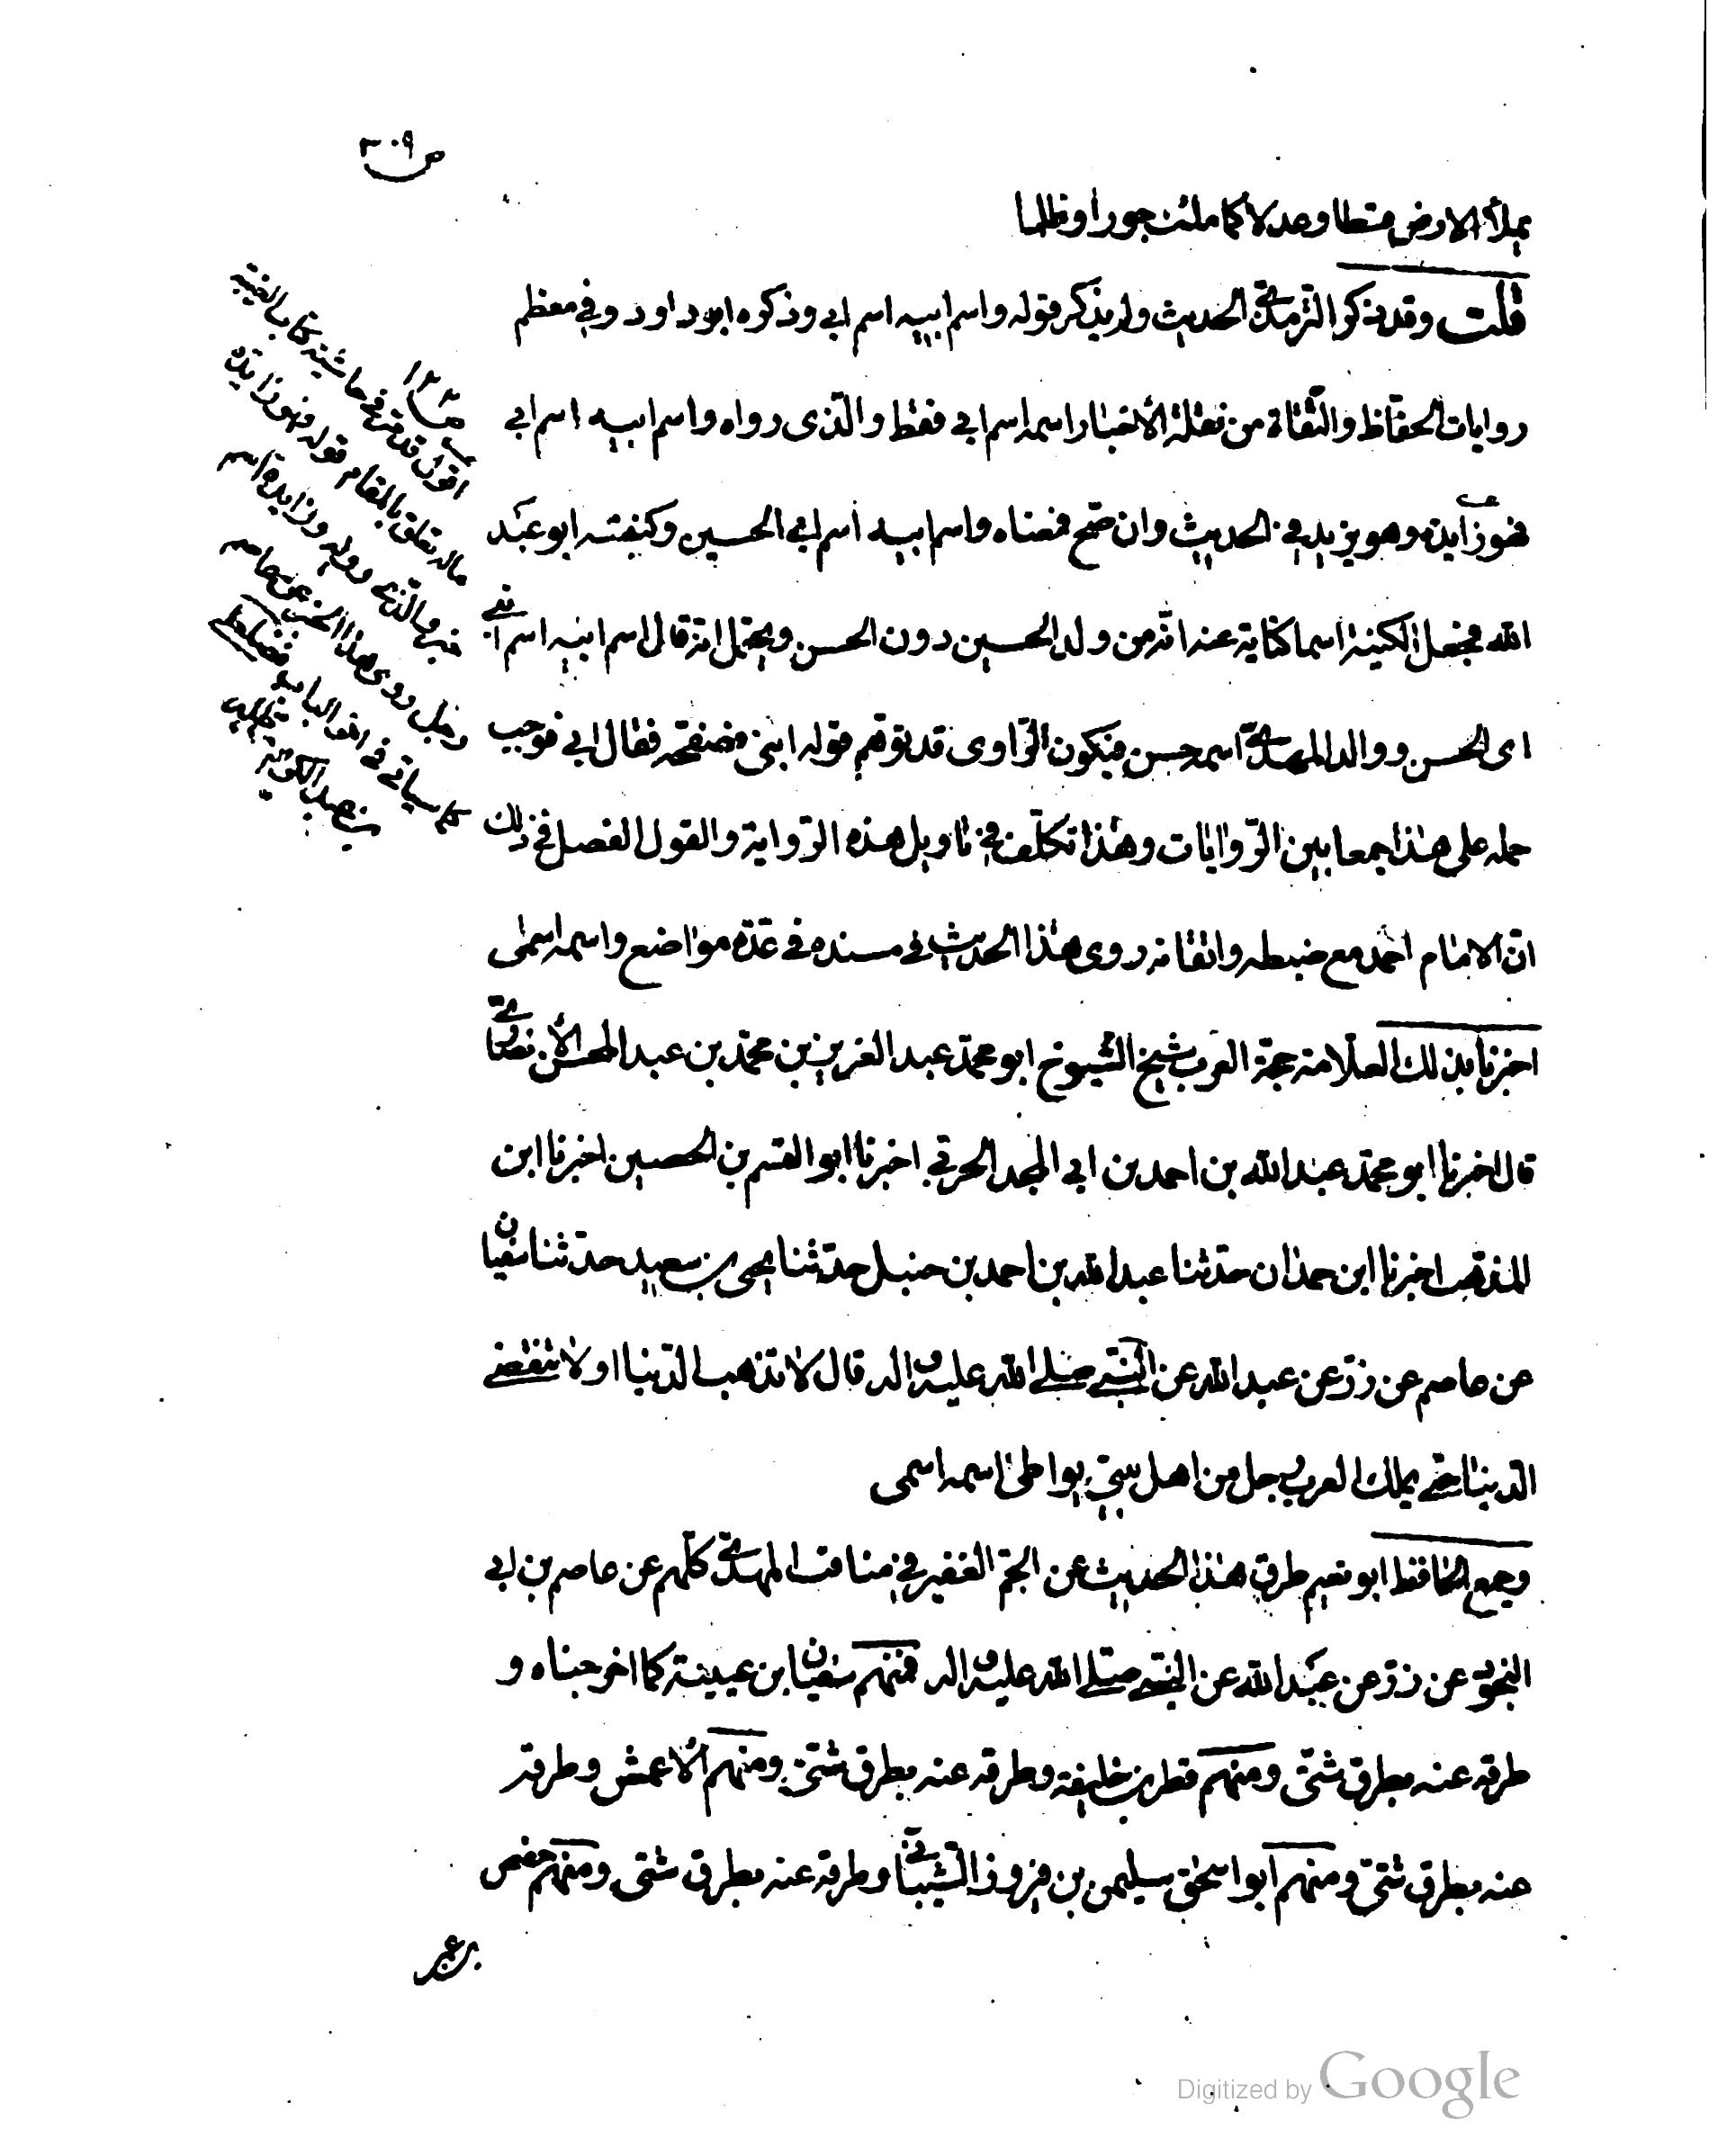 ص ٣٠٩
يملأ الارض قسطا وعدلا كما ملئت جورا وظلما
قلت وقد ذكر الترمذى الحديث ولم يذكر قوله واسم ابيه اسم ابى وذكره ابو داود وفى معظم
روايات الحفاظ والثقاة من نقلة الأخبار اسمه اسمى فقط والذى رواه واسم ابيه اسم ابى
فهو زايدة وهو يزيد فى الحديث وان صح فمعناه واسم ابيه اسم ابى الحسين وكنيته ابو عبد
الله فجعل الكنية اسما كناية عنه انه من ولد الحسين دون الحسن ويحتمل انه قال اسم ابيه اسم ابنى
اى الحسن ووالد المهدى اسمه حسن فيكون الراوى قد توهم قوله ابنى فصحفه فقال ابى فوجب
حمله على هذا جمعا بين الروايات وهذا تكلف فى تاويل هذه الرواية والقول الفصل فى ذلك
ان الامام احمد مع ضبطه واتقانه روى هذا الحديث فى مسنده فى عدة مواضع واسمه اسمى
اخبرنا بذلك العلامة حجة العرب شيخ الشيوخ ابو محمد عبد العزيز بن محمد بن عبد المحسن الأنصارى
قال اخبرنا ابو محمد عبد الله بن احمد بن ابى المجد الحربى اخبرنا ابو القسم بن الحصين اخبرنا ابن
المذهب اخبرنا ابن حمدان حدثنا عبد الله بن احمد بن حنبل حدثنا يحيى بن سعيد حدثنا سفيان
عن عاصم عن زر عن عبد الله عن النبى صلى الله عليه واله قال لا تذهب الدنيا او لا تنقضى
الدنيا حتى يملك العرب رجل من اهل بيتى يواطئ اسمه اسمى
وجمع الحافظ ابو نعيم طرق هذا الحديث عن الجم الغفير فى مناقب المهدى كلهم عن عاصم بن ابى
النجود عن زر عن عبد الله عن النبى صلى الله عليه واله فمنهم سفيان بن عيينة كما اخرجناه و
طرقه عنه بطرق شتى ومنهم فطر بن خليفة وطرقه عنه بطرق شتى ومنهم الأعمش وطرقه
عنه بطرق شتى ومنهم ابو اسحق سليمن بن فيروز الشيبانى وطرقه عنه بطرق شتى ومنهم حفص
بن عمر
اقول قد مر فى حاشية كتاب الغيبة
ص ١٢٢
ماله تعلق بالمقام قوله فهو زايدة
Digitized by Google